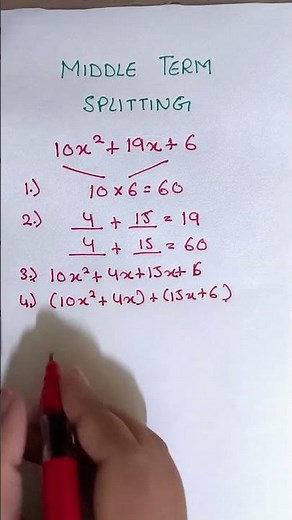 MIDDLE TERM
SPLITTING
10x²+19x+6
1.) 10×6=60
2.) 4 + 15 = 19
4 + 15 = 60
3.) 10x²+4x+15x+6
4.) (10x²+4x)+(15x+6)